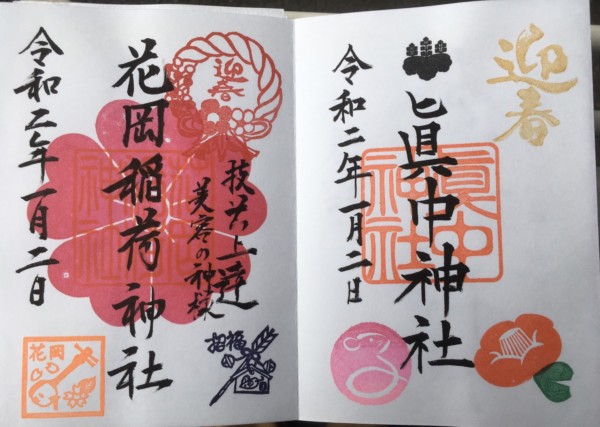 迎春
眞中神社
眞中
神社
令和二年一月二日
迎春
技芸上達
美容の神様
招福
花岡稲荷神社
神社
令和二年一月二日
花岡